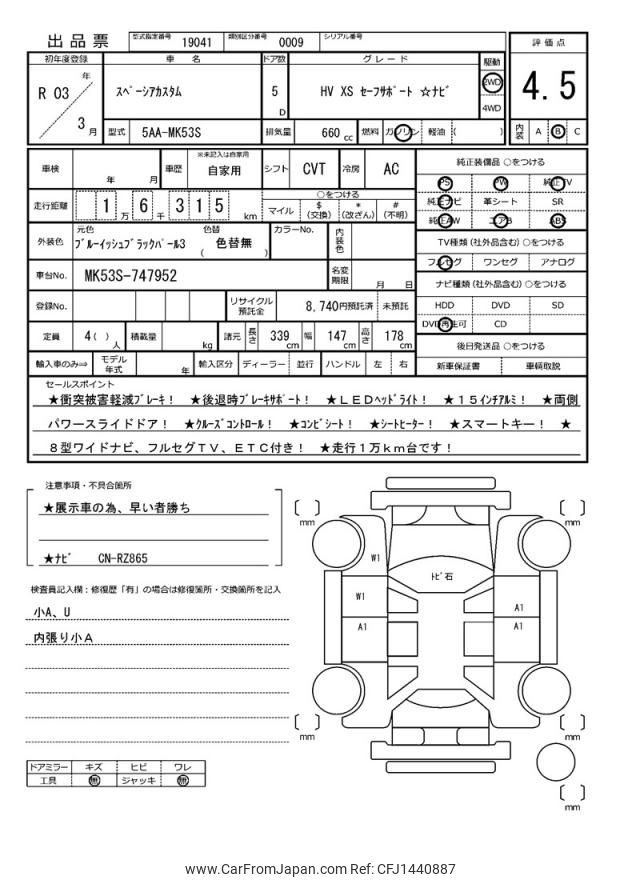 出品票 型式指定番号 19041 類別区分番号 0009 シリアル番号
評価点
4.5
内装 A B C
初年度登録 車名 ドア数 グレード 駆動
R 03 年 3 月
スペーシアカスタム 5 D HV XS セーフサポート ☆ナビ 2WD
4WD
型式 5AA-MK53S 排気量 660 cc 燃料 ガソリン 軽油 ( )
車検 年 月 車歴 ※未記入は自家用 自家用 シフト CVT 冷房 AC
走行距離 1 万 6 千 3 1 5 km
○をつける
マイル $(交換) *(改ざん) #(不明)
外装色 元色 ブルーイッシュブラックパール3 色替 ( 色替無 ) カラーNo. 内装色
車台No. MK53S-747952 名変期限 月 日
登録No. リサイクル預託金 8,740円預託済 未預託
定員 4( ) 人 積載量 kg 諸元 長さ 339 cm 幅 147 cm 高さ 178 cm
輸入車のみ⇒ モデル年式 年 輸入区分 ディーラー 並行 ハンドル 左 右
純正装備品 ○をつける
PS PW 純正TV
純正ナビ 革シート SR
純正AW エアB ABS
TV種類 (社外品含む) ○をつける
フルセグ ワンセグ アナログ
ナビ種類 (社外品含む) ○をつける
HDD DVD SD
DVD再生可 CD
後日発送品 ○をつける
新車保証書 車輌取説
セールスポイント
★衝突被害軽減ブレーキ! ★後退時ブレーキサポート! ★LEDヘッドライト! ★15インチアルミ! ★両側
パワースライドドア! ★クルーズコントロール! ★コンビシート! ★シートヒーター! ★スマートキー! ★
8型ワイドナビ、フルセグTV、ETC付き! ★走行1万km台です!
注意事項・不具合箇所
★展示車の為、早い者勝ち
★ナビ CN-RZ865
検査員記入欄:修復歴「有」の場合は修復箇所・交換箇所を記入
小A、U
内張り小A
ドアミラー キズ ヒビ ワレ
工具 無 ジャッキ 無
mm
mm
W1
トビ石
W1
A1
A1
A1
mm
mm
mm
www.CarFromJapan.com Ref: CFJ1440887